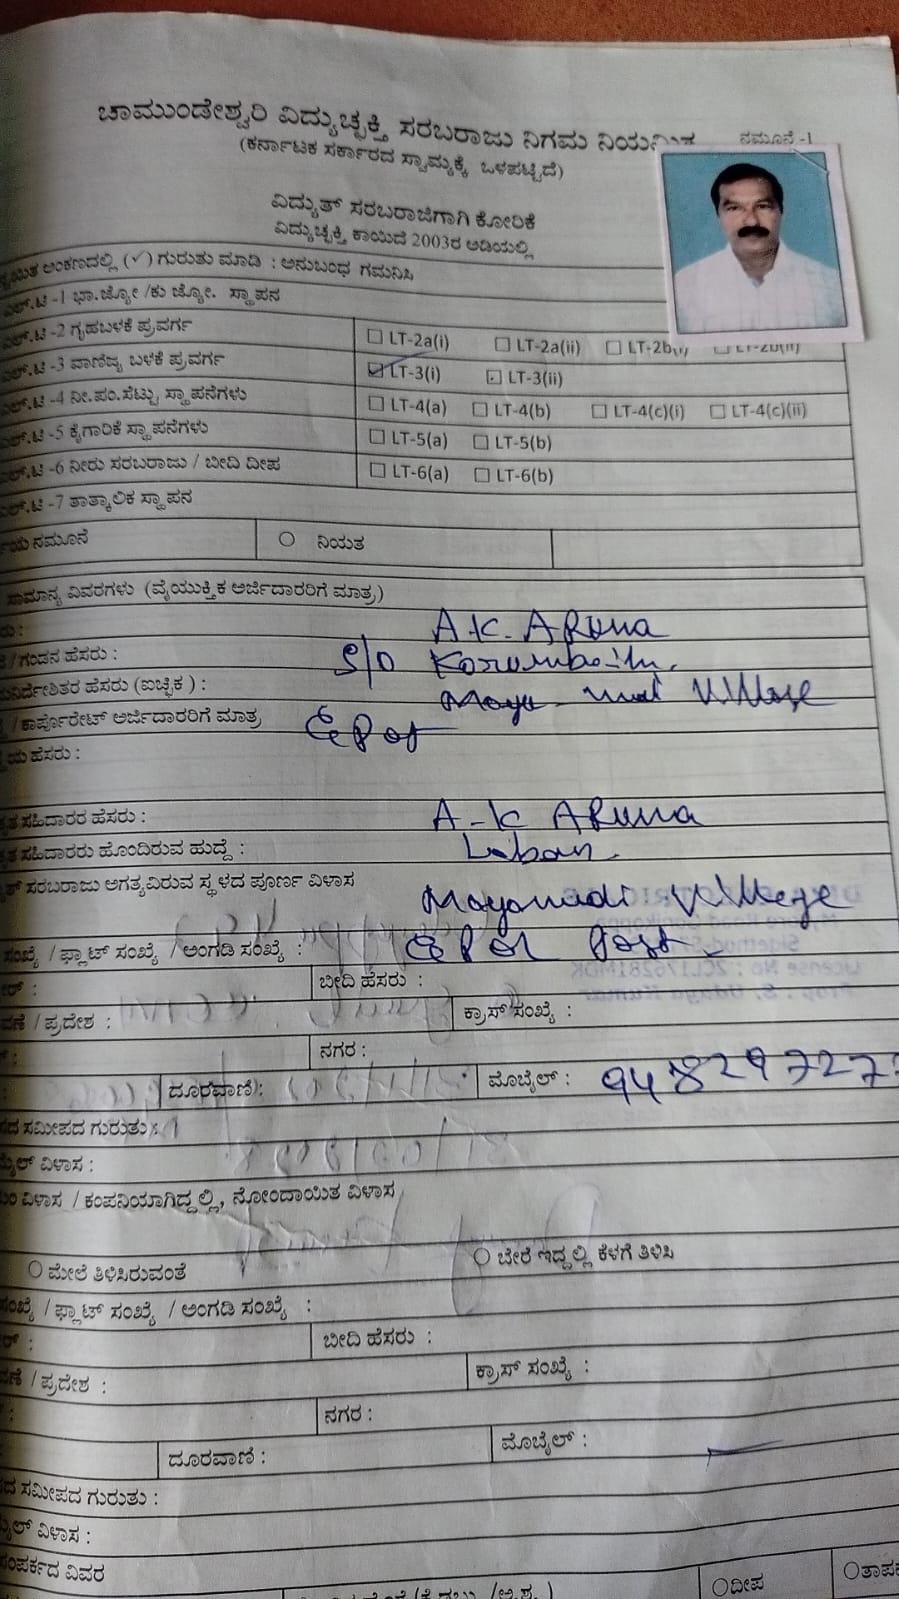 ಚಾಮುಂಡೇಶ್ವರಿ ವಿದ್ಯುಚ್ಛಕ್ತಿ ಸರಬರಾಜು ನಿಗಮ
ನಮೂನೆ -1
(ಕರ್ನಾಟಕ ಸರ್ಕಾರದ ಸ್ವಾಮ್ಯಕ್ಕೆ ಒಳಪಟ್ಟಿದೆ)
ವಿದ್ಯುತ್ ಸರಬರಾಜಿಗಾಗಿ ಕೋರಿಕೆ
ವಿದ್ಯುಚ್ಛಕ್ತಿ ಕಾಯಿದೆ 2003ರ ಅಡಿಯಲ್ಲಿ
ಅಂಕಣದಲ್ಲಿ (✓) ಗುರುತು ಮಾಡಿ : ಅನುಬಂಧ ಗಮನಿಸಿ
ಎಲ್.ಟಿ -1 ಭಾ.ಜ್ಯೋ /ಕು ಜ್ಯೋ. ಸ್ಥಾಪನ
ಎಲ್.ಟಿ -2 ಗೃಹಬಳಕೆ ಪ್ರವರ್ಗ LT-2a(i) LT-2a(ii) LT-2b(i) LT-2b(ii)
ಎಲ್.ಟಿ -3 ವಾಣಿಜ್ಯ ಬಳಕೆ ಪ್ರವರ್ಗ LT-3(i) LT-3(ii)
ಎಲ್.ಟಿ -4 ನೀ.ಪಂ.ಸೆಟ್ಟು ಸ್ಥಾಪನೆಗಳು LT-4(a) LT-4(b) LT-4(c)(i) LT-4(c)(ii)
ಎಲ್.ಟಿ -5 ಕೈಗಾರಿಕೆ ಸ್ಥಾಪನೆಗಳು LT-5(a) LT-5(b)
ಎಲ್.ಟಿ -6 ನೀರು ಸರಬರಾಜು / ಬೀದಿ ದೀಪ LT-6(a) LT-6(b)
ಎಲ್.ಟಿ -7 ತಾತ್ಕಾಲಿಕ ಸ್ಥಾಪನ
ನಮೂನೆ ನಿಯತ
ಸಾಮಾನ್ಯ ವಿವರಗಳು (ವೈಯುಕ್ತಿಕ ಅರ್ಜಿದಾರರಿಗೆ ಮಾತ್ರ)
A.K. ARuna
/ ಗಂಡನ ಹೆಸರು : S/O
ಹೆಸರು (ಐಚ್ಛಿಕ ) : Village
/ ಕಾರ್ಪೊರೇಟ್ ಅರ್ಜಿದಾರರಿಗೆ ಮಾತ್ರ
ಹೆಸರು :
ಸಹಿದಾರರ ಹೆಸರು : A-K ARuna
ಸಹಿದಾರರು ಹೊಂದಿರುವ ಹುದ್ದೆ :
ಸರಬರಾಜು ಅಗತ್ಯವಿರುವ ಸ್ಥಳದ ಪೂರ್ಣ ವಿಳಾಸ Mayamudi Village
ಸಂಖ್ಯೆ / ಫ್ಲಾಟ್ ಸಂಖ್ಯೆ / ಅಂಗಡಿ ಸಂಖ್ಯೆ : Post
ಬೀದಿ ಹೆಸರು :
/ ಪ್ರದೇಶ : ಕ್ರಾಸ್ ಸಂಖ್ಯೆ :
ನಗರ :
ದೂರವಾಣಿ : ಮೊಬೈಲ್ :
ಸಮೀಪದ ಗುರುತು :
ವಿಳಾಸ :
ವಿಳಾಸ / ಕಂಪನಿಯಾಗಿದ್ದಲ್ಲಿ, ನೋಂದಾಯಿತ ವಿಳಾಸ
ಮೇಲೆ ತಿಳಿಸಿರುವಂತೆ ಬೇರೆ ಇದ್ದಲ್ಲಿ ಕೆಳಗೆ ತಿಳಿಸಿ
ಸಂಖ್ಯೆ / ಫ್ಲಾಟ್ ಸಂಖ್ಯೆ / ಅಂಗಡಿ ಸಂಖ್ಯೆ :
ಬೀದಿ ಹೆಸರು :
/ ಪ್ರದೇಶ : ಕ್ರಾಸ್ ಸಂಖ್ಯೆ :
ನಗರ :
ದೂರವಾಣಿ : ಮೊಬೈಲ್ :
ಸಮೀಪದ ಗುರುತು :
ವಿಳಾಸ :
ಸಂಪರ್ಕದ ವಿವರ
ದೀಪ